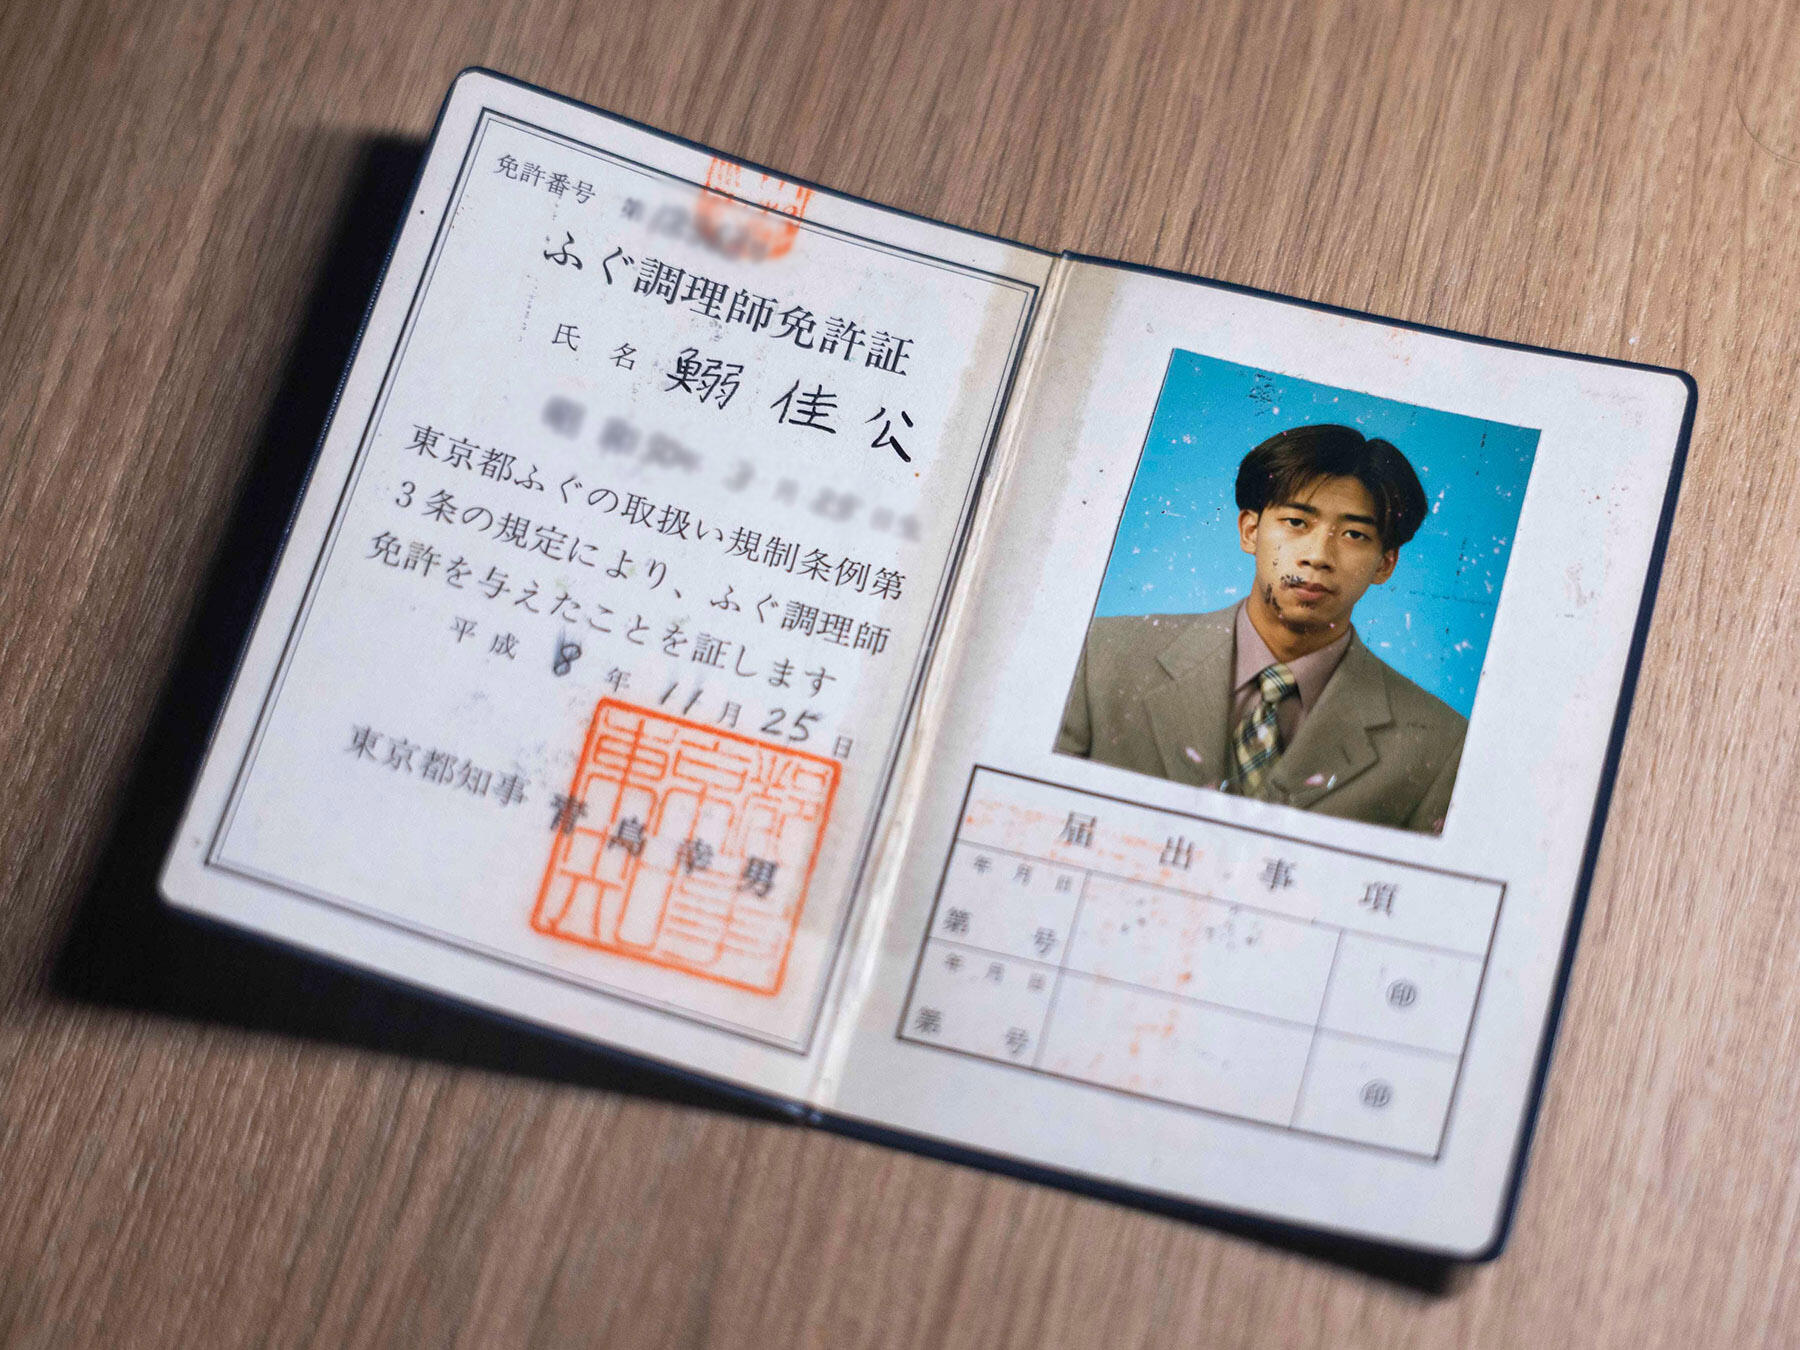 免許番号 第
ふぐ調理師免許証
氏名 鰯 佳公
東京都ふぐの取扱い規制条例第
3条の規定により、ふぐ調理師
免許を与えたことを証します
平成 8 年 11 月 25 日
東京都知事 青島幸男
届出事項
年月日
第 号
印
年月日
第 号
印